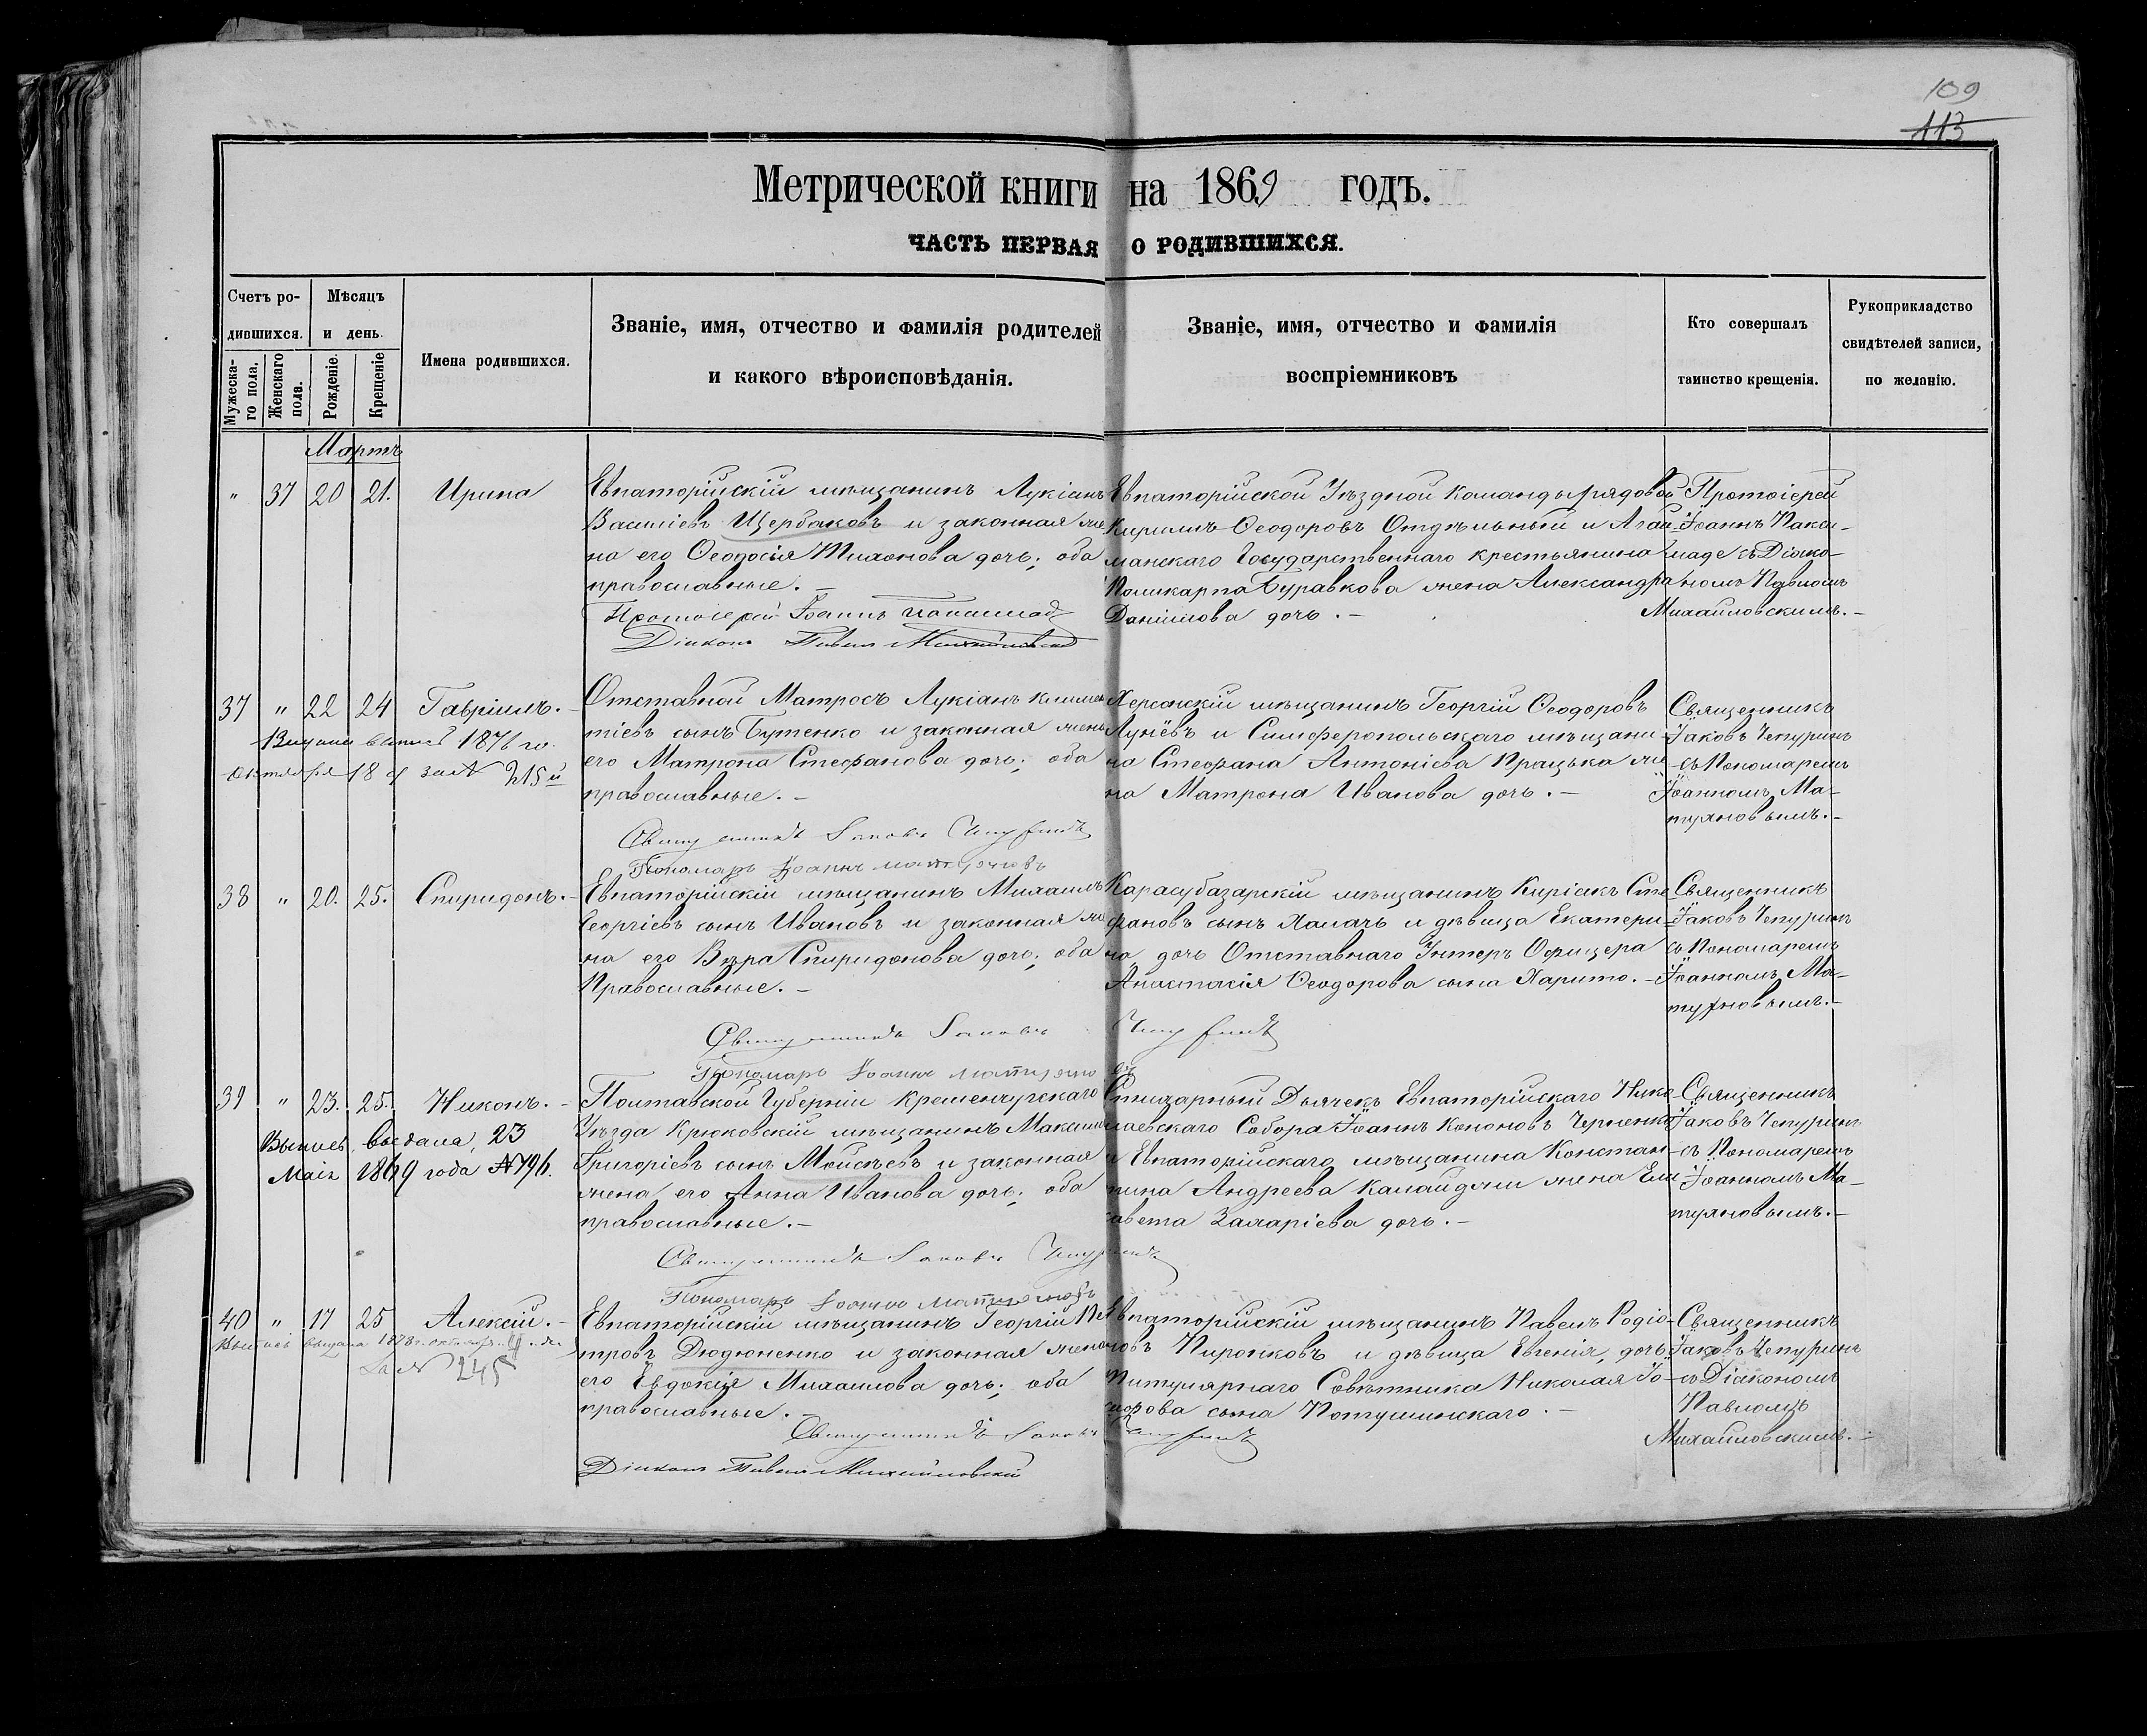 109
113
Метрической книги на 1869 годъ.
ЧАСТЬ ПЕРВАЯ О РОДИВШИХСЯ.
Счетъ ро-
дившихся.
Мужеска-
го пола.
Женскаго
пола.
Мѣсяцъ
и день.
Рожденіе.
Крещеніе
Имена родившихся.
Званіе, имя, отчество и фамилія родителей
и какого вѣроисповѣданія.
Званіе, имя, отчество и фамилія
воспріемниковъ
Кто совершалъ
таинство крещенія.
Рукоприкладство
свидѣтелей записи,
по желанію.
Мартъ
" 37 20 21. Ирина
Евпаторійскій мѣщанинъ Лукіанъ
Василіевъ Щербаковъ и законная же
на его Ѳеодосія Тихонова дочь; оба
православные. –
Протоіерей Іоаннъ
Діаконъ Павелъ Михайловскій
Евпаторійской Уѣздной Команды рядовой
Кириллъ Ѳеодоровъ Отдѣльный и
манскаго Государственнаго крестьянина
Поликарпа Буравкова жена Александра
Даніилова дочь. –
Протоіерей
Іоаннъ
съ Діяко-
номъ Павломъ
Михайловскимъ. –
37 " 22 24 Гавріилъ. –
1876 го
Октября 18 за № 215й
Отставной Матросъ Лукіанъ Климен
тіевъ сынъ Бутенко и законная жена
его Матрона Стефанова дочь; оба
православные. –
Священникъ Іаковъ Чепуринъ
Пономарь Іоаннъ Матухновъ
Херсонскій мѣщанинъ Георгій Ѳеодоровъ
Лунёвъ и Симферопольскаго мѣщани-
на Стефана Антоніева Працька же
на Матрона Иванова дочь. –
Священникъ
Іаковъ Чепуринъ
съ Пономаремъ
Іоанномъ Ма-
тухновымъ. –
38 " 20. 25. Спиридонъ. –
Евпаторійскій мѣщанинъ Михаилъ
Георгіевъ сынъ Ивановъ и законная же
на его Вѣра Спиридонова дочь; оба
Православные. –
Священникъ Іаковъ Чепуринъ
Пономарь Іоаннъ Матухновъ
Карасубазарскій мѣщанинъ Киріакъ Сте
фановъ сынъ Халачъ и дѣвица Екатери-
на дочь Отставнаго Унтеръ Офицера
Анастасія Ѳеодорова сына Харито. –
Священникъ
Іаковъ Чепуринъ
съ Пономаремъ
Іоанномъ Ма-
тухновымъ. –
39 " 23. 25. Никонъ. –
Выпись выдана 23
Маія 1869 года № 796.
Полтавской Губерніи Кременчугскаго
Уѣзда Крюковскій мѣщанинъ Максимъ
Григоріевъ сынъ Мойсѣевъ и законная
жена его Анна Иванова дочь; оба
православные. –
Священникъ Іаковъ Чепуринъ
Пономарь Іоаннъ Матухновъ
Стихарный Дьячекъ Евпаторійскаго Нико-
лаевскаго Собора Іоаннъ Кононовъ Черненко
и Евпаторійскаго мѣщанина Констан-
тина Андреева Калайджи жена Ели
савета Захаріева дочь. –
Священникъ
Іаковъ Чепуринъ
съ Пономаремъ
Іоанномъ Ма-
тухновымъ. –
40 " 17 25 Алексій. –
Выпись выдана 1878
За № 245
Евпаторійскій мѣщанинъ Георгій Пе
тровъ Дюдюненко и законная жена
его Евдокія Михаилова дочь; оба
православные. –
Священникъ Іаковъ Чепуринъ
Діаконъ Павелъ Михайловскій
Евпаторійскій мѣщанинъ Павелъ Родіо-
новъ Пирожковъ и дѣвица Евгенія, дочь
Титулярнаго Совѣтника Николая Іо-
сифова сына Потушинскаго. –
Священникъ
Іаковъ Чепуринъ
съ Діакономъ
Павломъ
Михайловскимъ. –